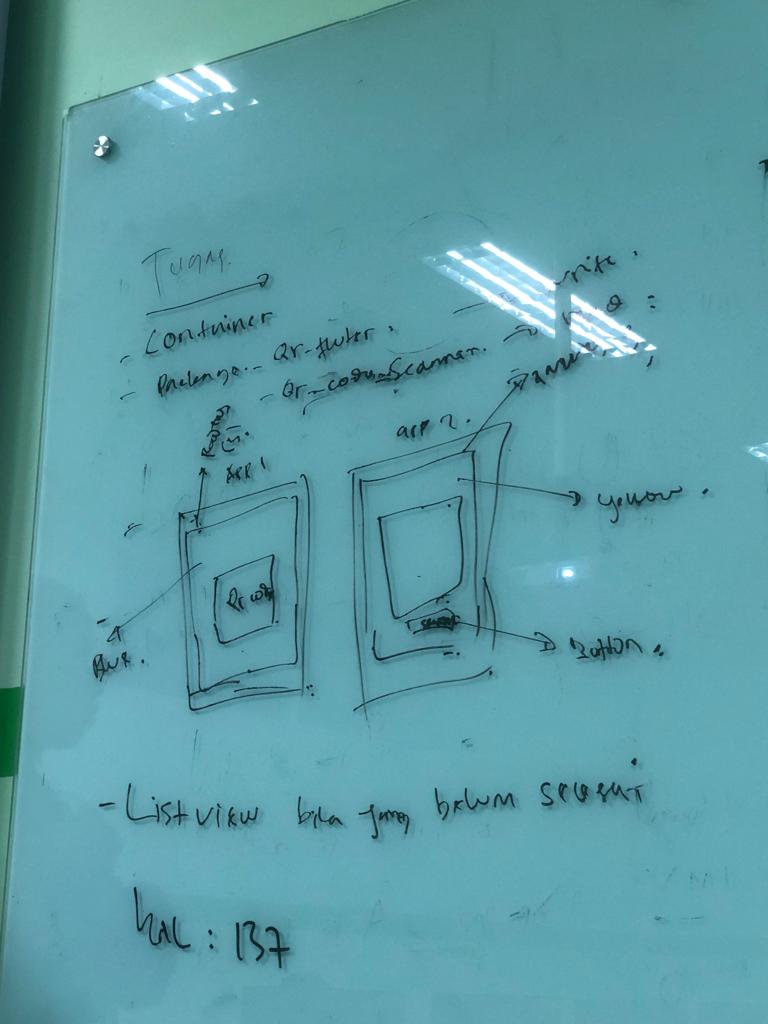 Tugas
- Container
- Package - Qr-fluter.
- Qr-code-Scanner.
app 1
app 2.
yellow.
Qr code
Blue.
Button.
- Listview bila yang belum selesai
hal : 137